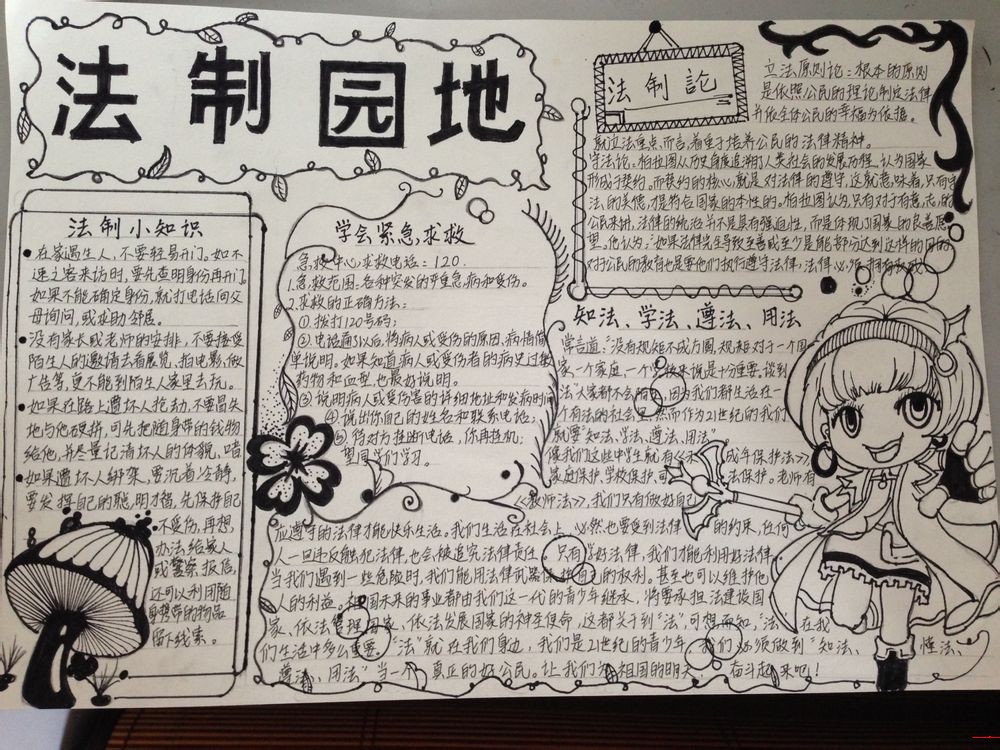 法制园地
法制小知识
在家遇生人,不要轻易开门。如不
速之客来访时,要先查明身份再开门。
如果不能确定身份,就打电话向父
母询问,或求助邻居。
没有家长或老师的安排,不要接受
陌生人的邀请去看展览、拍电影、做
广告等,更不能到陌生人家里去玩。
如果在路上遭坏人抢劫,不要冒失
地与他硬拼,可先把随身带的钱物
给他,并尽量记清坏人的体貌、
如果遭坏人绑架,要沉着冷静,
要发挥自己的聪明才智,先保护自己
不受伤,再想
办法给家人
或警察报信,
还可以利用随
身携带的物品
留下线索。
学会紧急求救
急救中心求救电话:120.
1.急救范围:各种突发的严重急病和受伤。
2.求救的正确方法:
①拨打120号码;
②电话通了以后,将病人或受伤的原因、病情简
单说明。如果知道病人或受伤者的病史、过敏
药物和血型,也最好说明。
③说明病人或受伤害的详细地址和发病时间
④说出你自己的姓名和联系电话;
⑤待对方挂断电话,你再挂机;
里同学们学习。
法制論
立法原则论:根本的原则
是依照公民的理论制定法律
并依全体公民的幸福为依据。
就立法重点而言,着重于培养公民的法律精神。
守法论。柏拉图从历史角度追溯了人类社会的发展历程,认为国家
形成于契约。而契约的核心,就是对法律的遵守,这就意味着,只有守
法的美德,才是符合国家的本性的。柏拉图认为,只有对于有意志的
公民来讲,法律的统治并不是具有强迫性,而是体现了国家的良善愿
望。他认为:“如果法律先生导致至善或至少是能部分达到这样的目的
对于公民的教育也是要他们执行遵守法律,法律必须拥有权威
知法、学法、遵法、用法
常言道:“没有规矩不成方圆,规矩对于一个国
家、一个家庭、一个学校来说是十分重要。谈到
法”大家都不会陌生。因为我们都生活在一
个有法的社会里。然而作为21世纪的我们
就要“知法、学法、遵法、用法”。
像我们这些中学生就有《未 成年保护法》,
家庭保护、学校保护、司 法保护。老师有
《教师法》,我们只有做好自己
应遵守的法律才能快乐生活。我们生活在社会上,必然也要受到法律 的约束,任何
人一旦违反触犯法律,也会被追究法律责任。只有学好法律,我们才能利用好法律,
当我们遇到一些危险时,我们能用法律武器保护自己的权利。甚至也可以维护他
人的利益。祖国未来的事业都由我们这一代的青少年继承,将要承担法建设国
家、依法管理国家、依法发展国家的神圣使命,这都关于到“法”,可想而知,“法” 在我
们生活中多么重要。“法”就在我们身边,我们是21世纪的青少年,我们必须做到“知法、 懂法、
遵法、用法”当一个真正的好公民。让我们为祖国的明天, 奋斗起来吧!